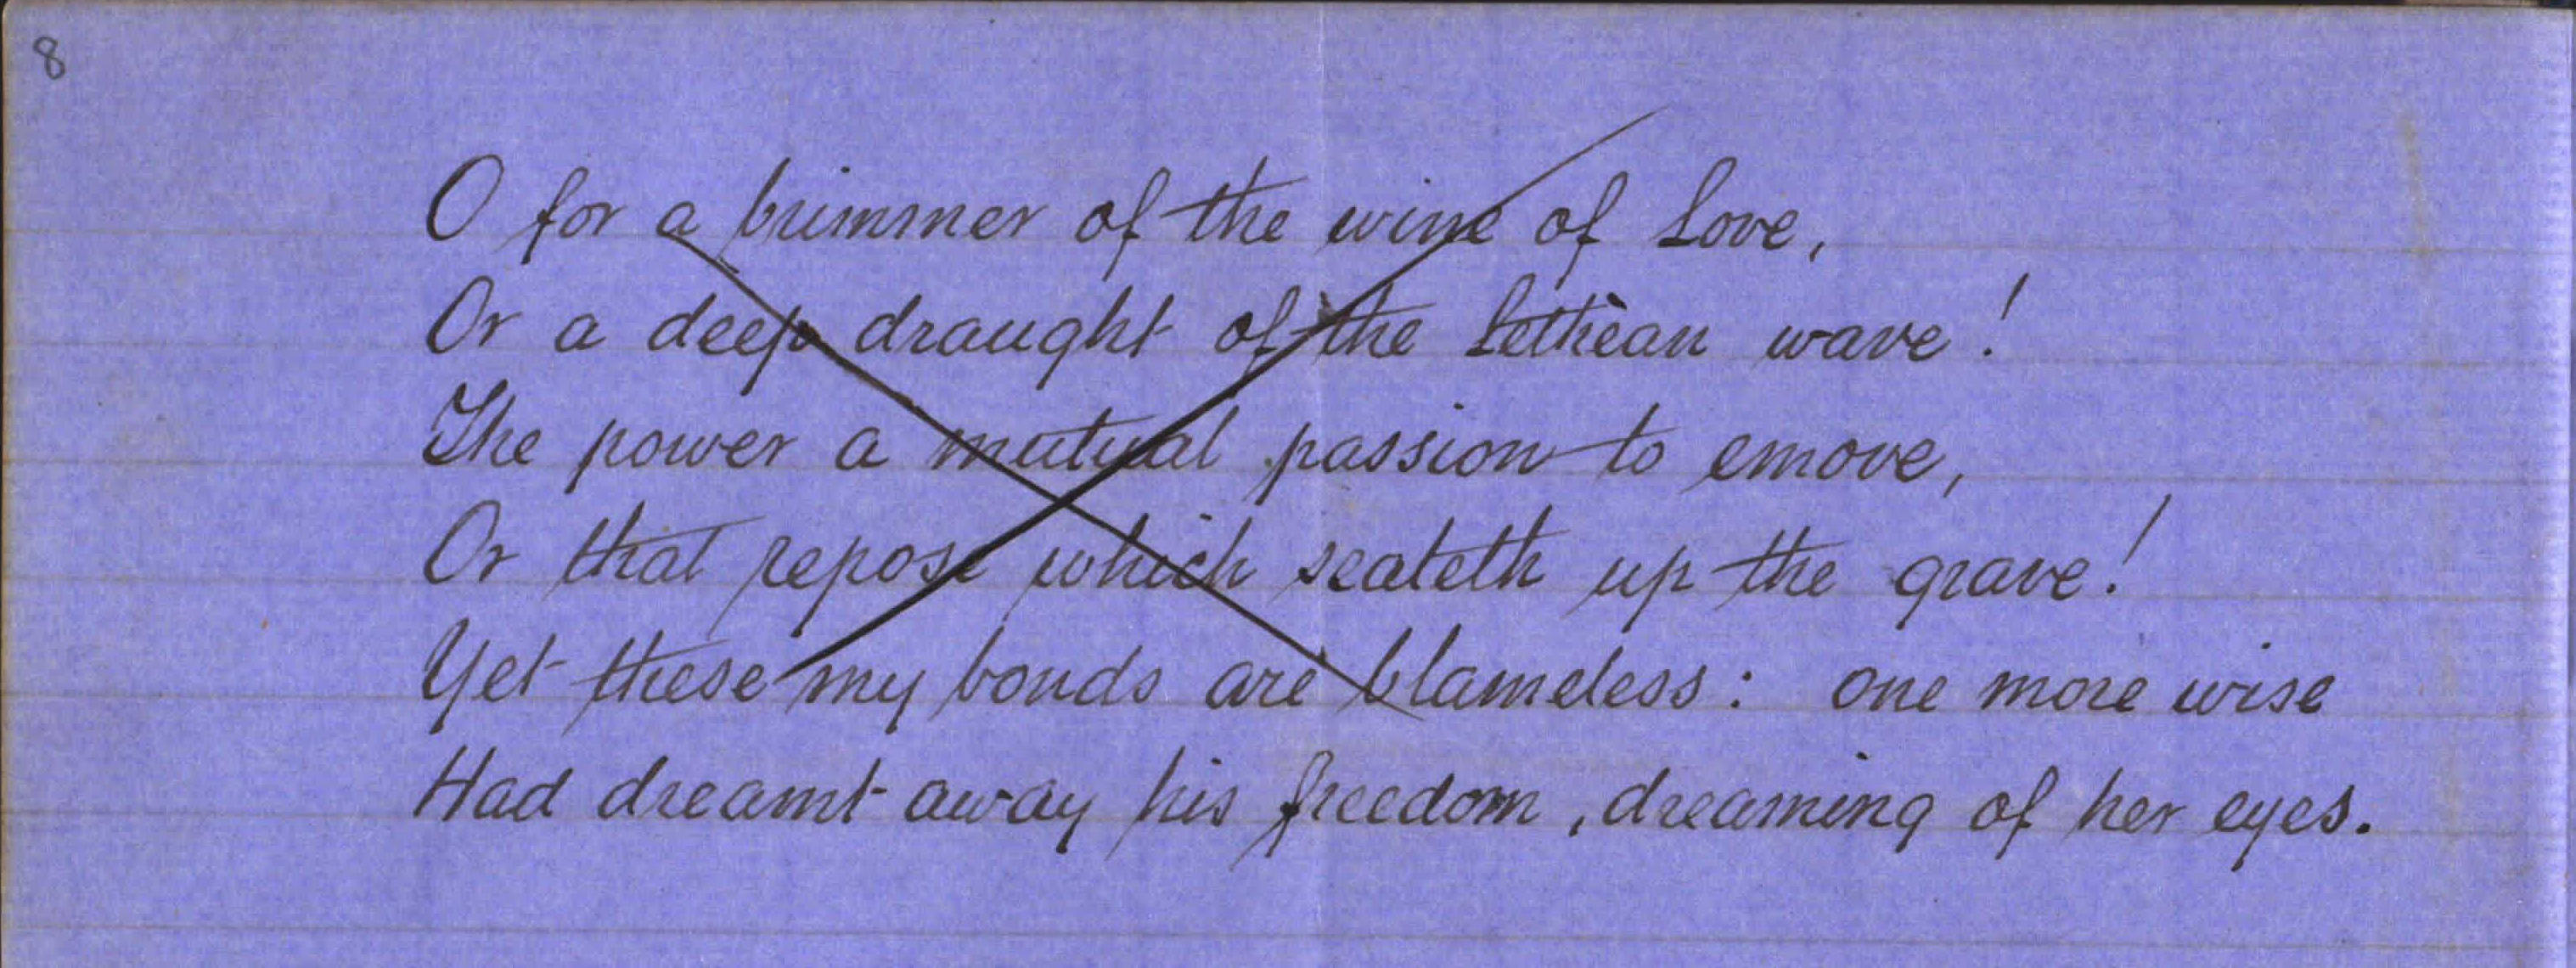 8
O for a brimmer of the wine of Love,
Or a deep draught of the Lethèan wave!
The power a mutual passion to emove,
Or that repose which sealeth up the grave!
Yet these my bonds are blameless: one more wise
Had dreamt away his freedom, dreaming of her eyes.